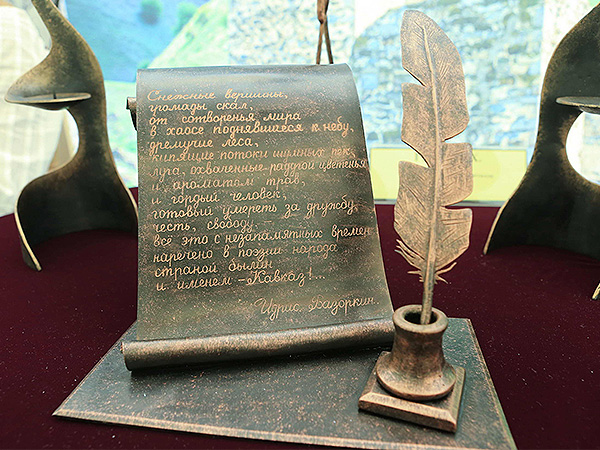 Снежные вершины,
громады скал,
от сотворенья мира
в хаосе поднявшиеся к небу,
дремучие леса,
кипящие потоки шумных рек,
луга, охваченные радугой цветенья
и ароматом трав,
и гордый человек,
готовый умереть за дружбу,
честь, свободу...
всё это с незапамятных времен
наречено в поэзии народа
страной былин
и именем – Кавказ!...
Идрис Базоркин